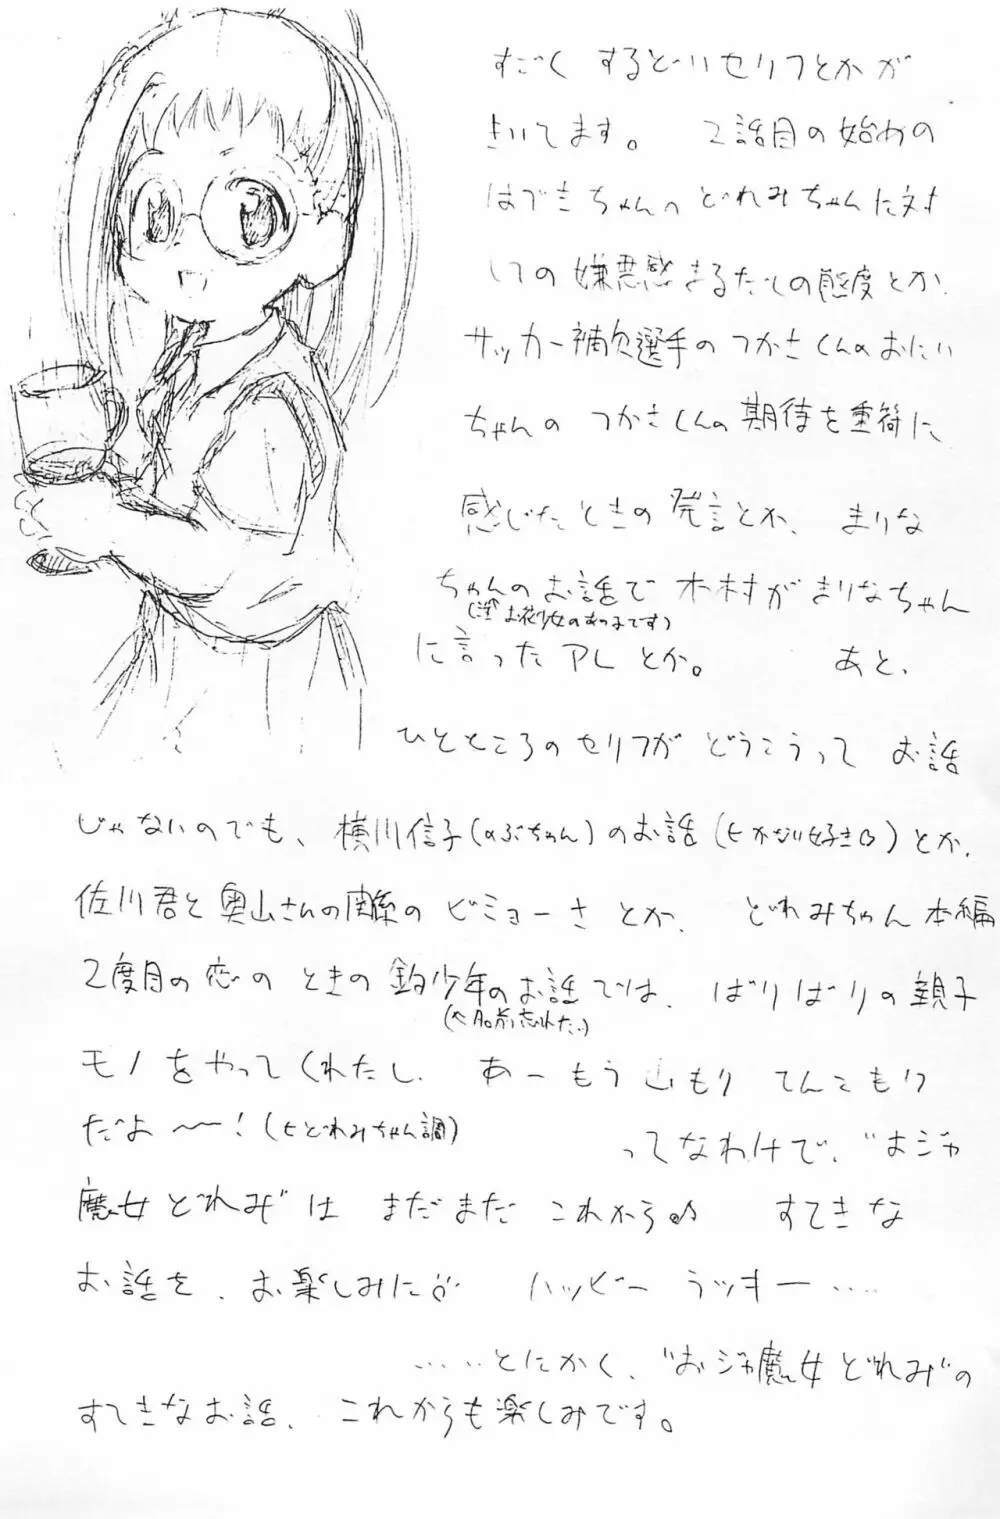 すごく するどいセリフとかが
きいてます。 2話目の始めの
はづきちゃんの どれみちゃんに対
しての嫌悪感まるだしの態度とか、
サッカー補欠選手の つかさくんのおにい
ちゃんの つかさくんの期待を重荷に
感じたときの発言とか、 まりな
ちゃんの お話で 木村が まりなちゃん
(注 お花少女のあの子です)
に言ったアレとか。 あと、
ひとところのセリフが どうこうって お話
じゃないのでも、横川信子(のぶちゃん)のお話(←かなり好き)とか、
佐川君と奥山さんの関係の ビミョーさ とか、 どれみちゃん本編
2度目の恋の ときの 釣少年のお話では、 ばりばりの親子
(←名前忘れた)
モノをやってくれたし、 あーもう 山もり てんこもり
だよ〜〜!(←どれみちゃん調)
ってなわけで、"おジャ
魔女どれみ"は まだまだ これから♪ すてきな
お話を、お楽しみに ハッピー ラッキー・・・・
・・・・・とにかく、"おジャ魔女どれみ"の
すてきなお話、 これからも楽しみです。